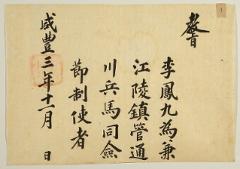 教旨
李鳳九為兼
江陵鎮管通
川兵馬同僉
節制使者
咸豐三年十一月 日